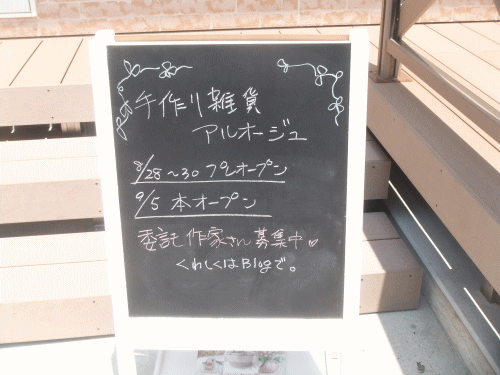 手作り雑貨
アルオージュ
8/28～30 プレオープン
9/5 本オープン
委託作家さん募集中♡
くわしくはBlogで。